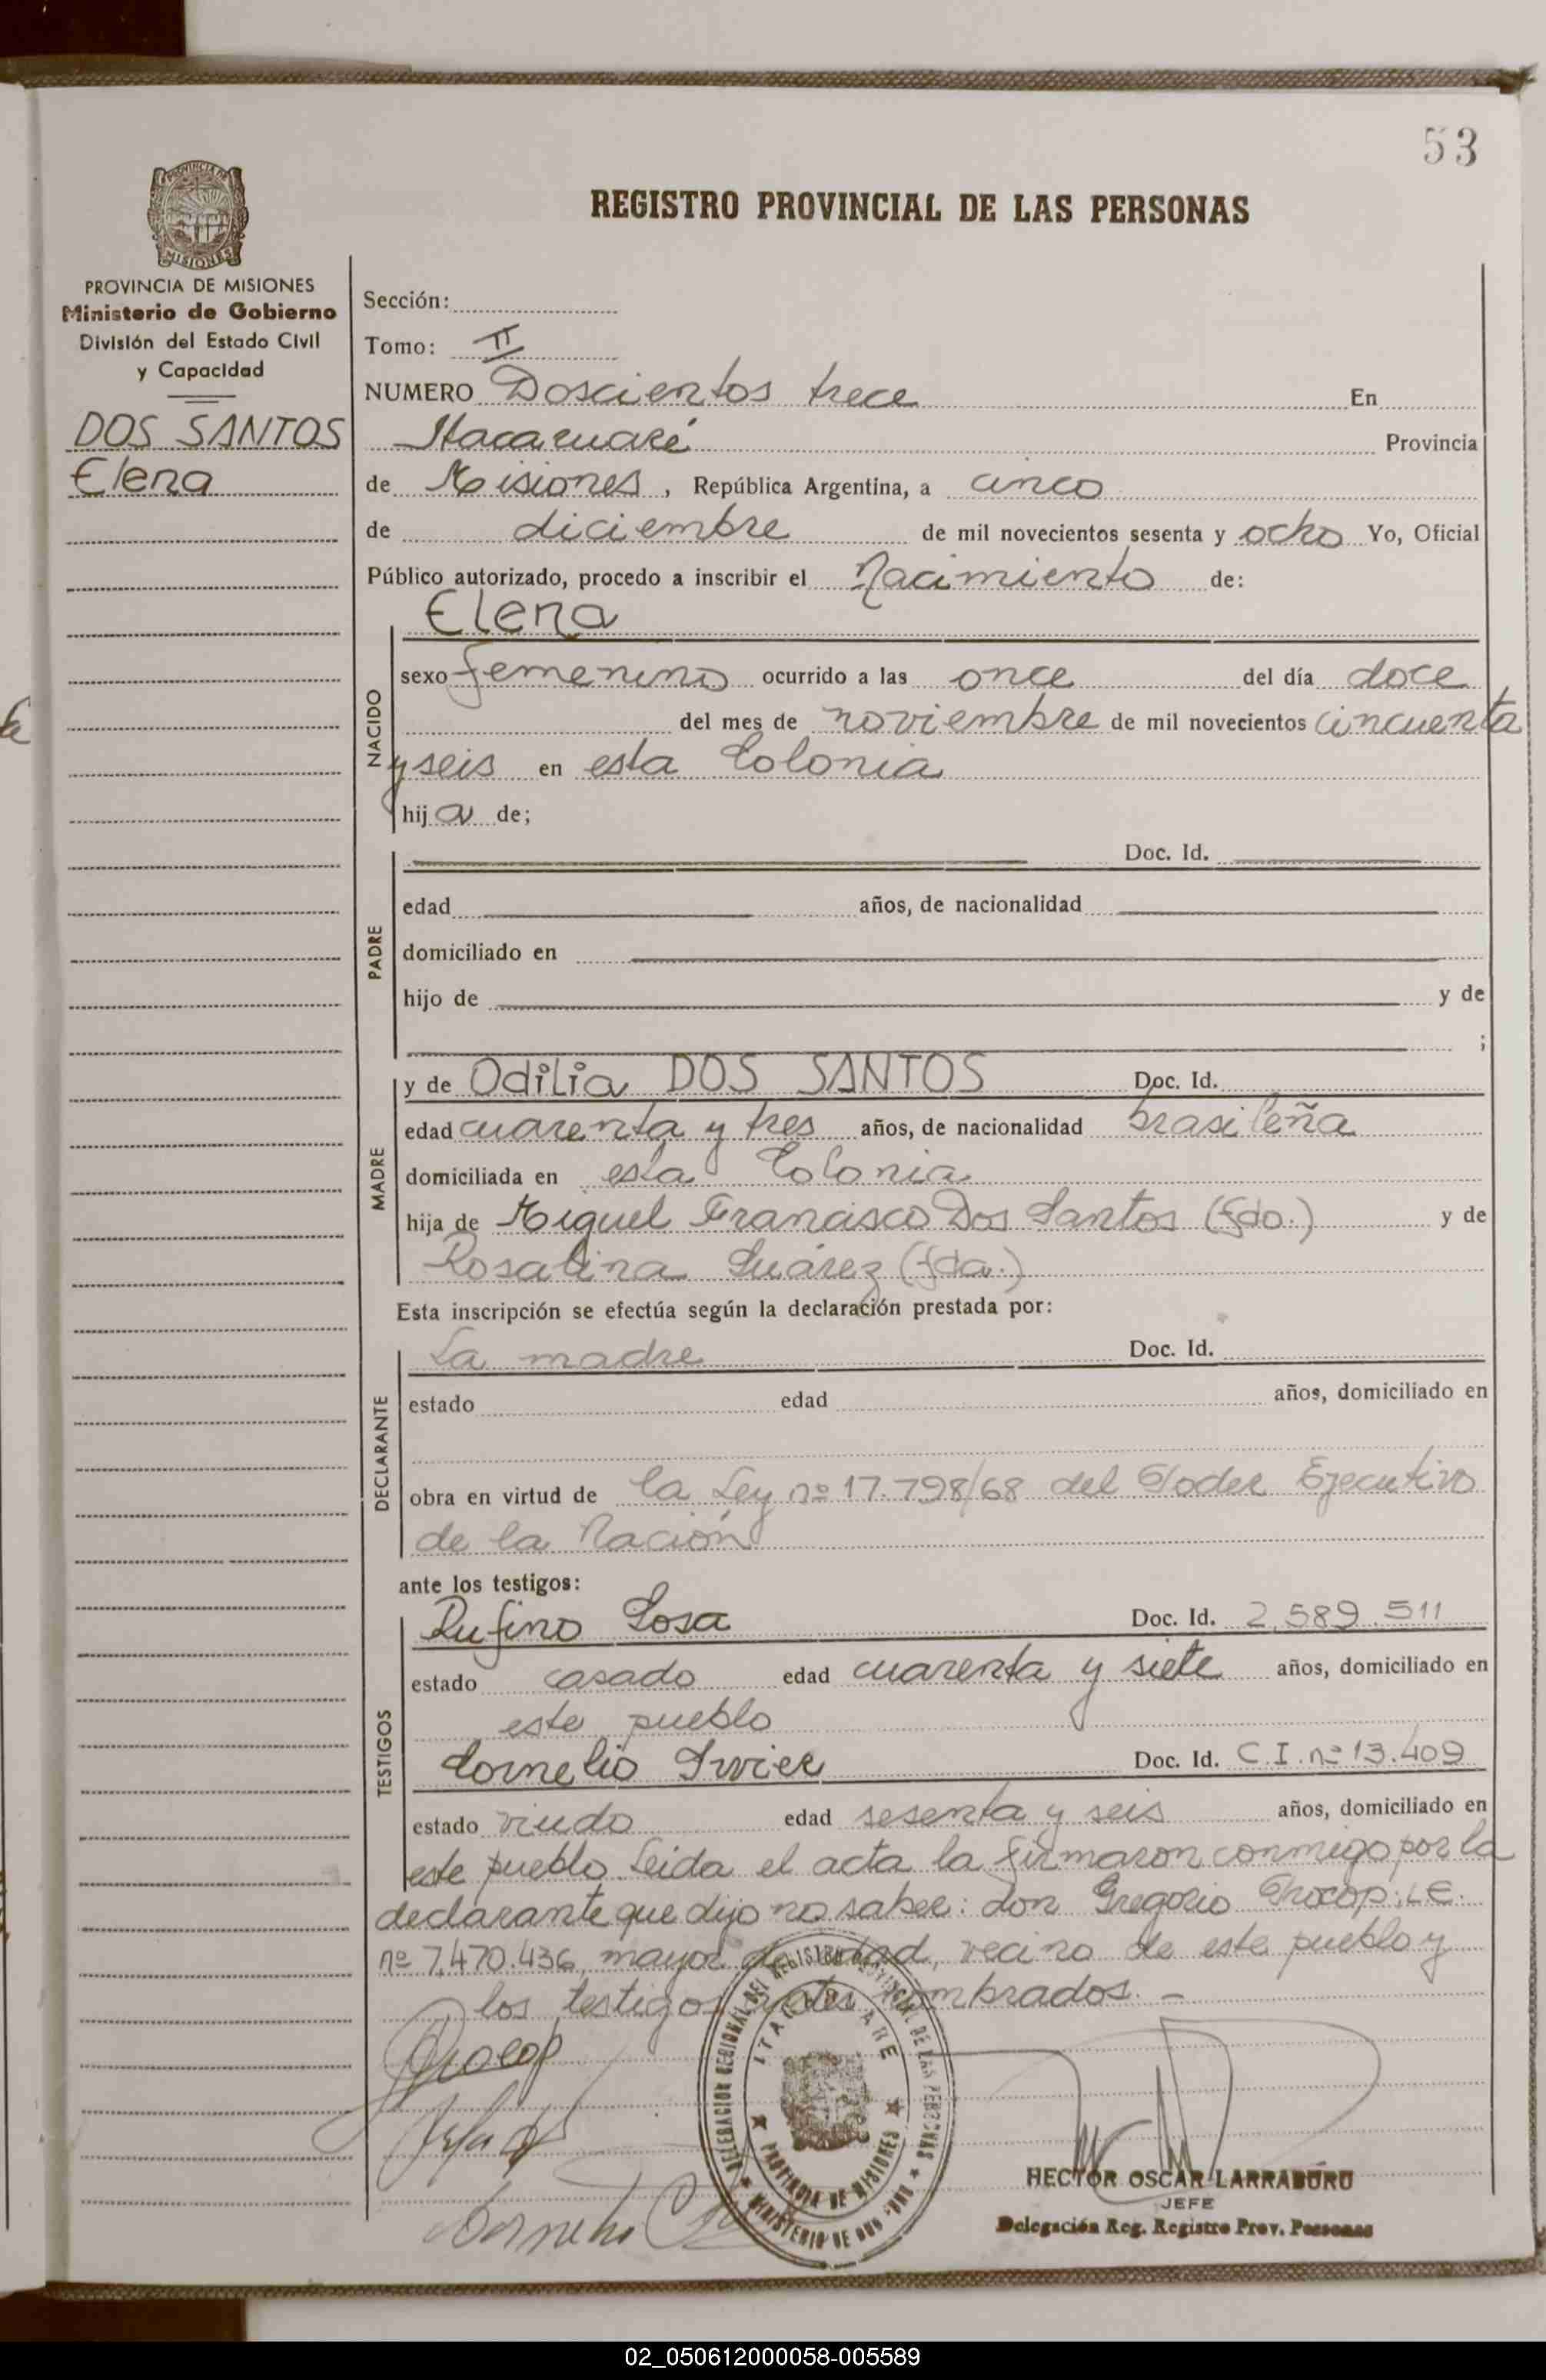 53
PROVINCIA DE MISIONES
Ministerio de Gobierno
División del Estado Civil
y Capacidad
DOS SANTOS
Elena
REGISTRO PROVINCIAL DE LAS PERSONAS
Sección:
Tomo: II
NUMERO Doscientos trece En
Itacaruaré Provincia
de Misiones, República Argentina, a cinco
de diciembre de mil novecientos sesenta y ocho Yo, Oficial
Público autorizado, procedo a inscribir el Nacimiento de:
NACIDO
Elena
sexo femenino ocurrido a las once del día doce
del mes de noviembre de mil novecientos cincuenta
y seis en esta Colonia
hija de;
PADRE
Doc. Id.
edad años, de nacionalidad
domiciliado en
hijo de y de
;
MADRE
y de Odilia DOS SANTOS Doc. Id.
edad cuarenta y tres años, de nacionalidad brasileña
domiciliada en esta Colonia
hija de Miguel Francisco Dos Santos (fdo.) y de
Rosalina Suárez (fda.)
Esta inscripción se efectúa según la declaración prestada por:
DECLARANTE
La madre Doc. Id.
estado edad años, domiciliado en
obra en virtud de la Ley nº 17.798/68 del Poder Ejecutivo
de la Nación
ante los testigos:
TESTIGOS
Rufino Sosa Doc. Id. 2.589.511
estado casado edad cuarenta y siete años, domiciliado en
este pueblo
Cornelio Doc. Id. C.I. nº 13.409
estado viudo edad sesenta y seis años, domiciliado en
este pueblo. Leida el acta la firmaron conmigo, por la
declarante que dijo no saber: don Gregorio Procop, L.E.
nº 7.470.436, mayor de edad, vecino de este pueblo y
los testigos antes nombrados. -
Procop
DELEGACION REGIONAL DEL REGISTRO PROVINCIAL DE LAS PERSONAS
ITACARUARE
PROVINCIA DE MISIONES
MINISTERIO DE GOB.
Cornelio
HECTOR OSCAR LARRABURU
JEFE
Delegación Reg. Registro Prov. Personas
02_050612000058-005589